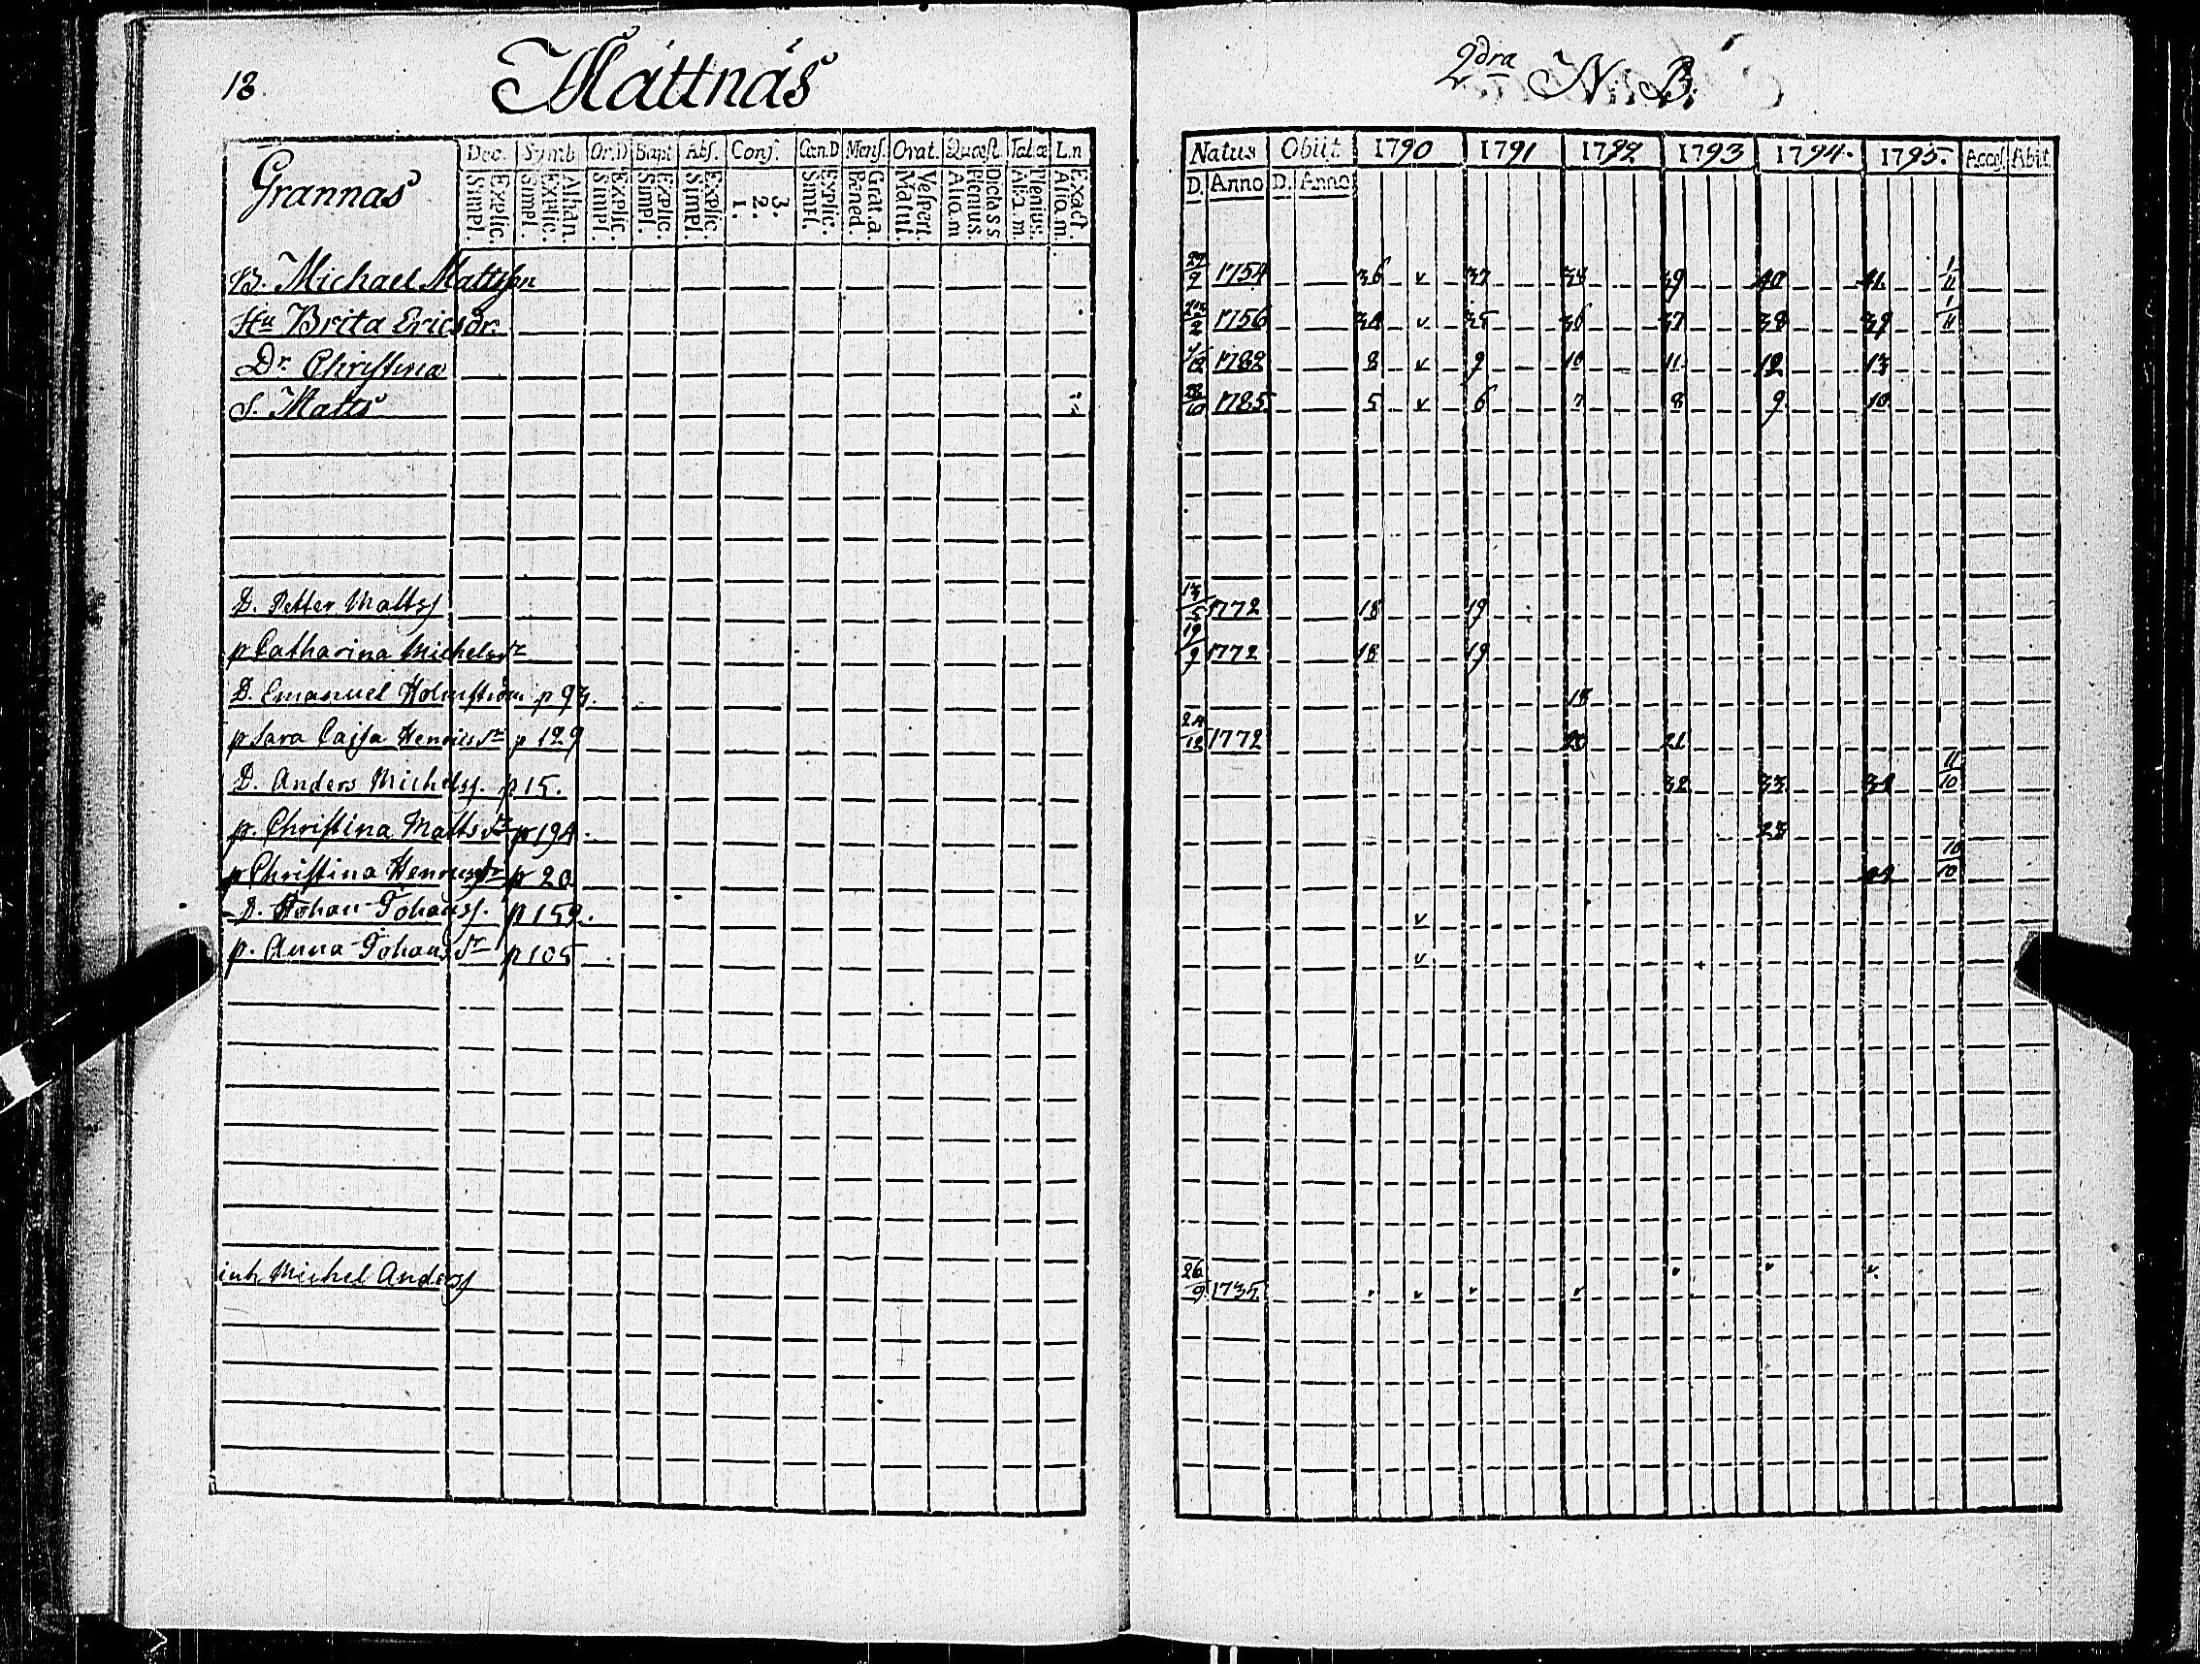 18. Mattnäs 2dra N. B.
Grannas Dec. Symb. Or.D Bapt Abs. Conf. Cœn.D Mens. Orat. Quæst. Tab.œ L.n Natus Obiit 1790 1791 1792 1793 1794. 1795. Acces. Abit.
Simpl. Explic. Simpl. Explic. Athan. Simpl. Explic. Simpl. Explic. Simpl. Explic. 1. 2. 3. Simpl. Explic. Bened. Grat. a Matut. Vespert. Aliq.m Plenius. Dicta S S. Aliq. m. Plenius. Aliq. m. Exact. D. Anno D. Anno
B. Michael Mattsson 29/9 1754 36 v 37 38 39 40 41 1/11
Hu Brita Ericsdr. 2 1756 34 v 35 36 37 38 39 1/11
Dr Christina 1782 8 v 9 10 11 12 13
S. Matts 28/10 1785. 5 v 6 7 8 9 10
D. Petter Mattsf 13/5 1772 18 19
p Catharina Michelsdr 19/9 1772 18 19
D. Emanuel Holmström p 93. 18
p Sara Cajsa Henricsdr p 129 24/12 1772 20 21
D. Anders Michelsf. p 15. 32 33 34 11/10
p. Christina Mattsdr p 194. 28
p Christina Henricsdr p 20 10/10
D. Johan Johansf. p 159. v
p. Anna Johansdr p 105 v
inh Michel Andersf 26/9 1735. v v v v v v v